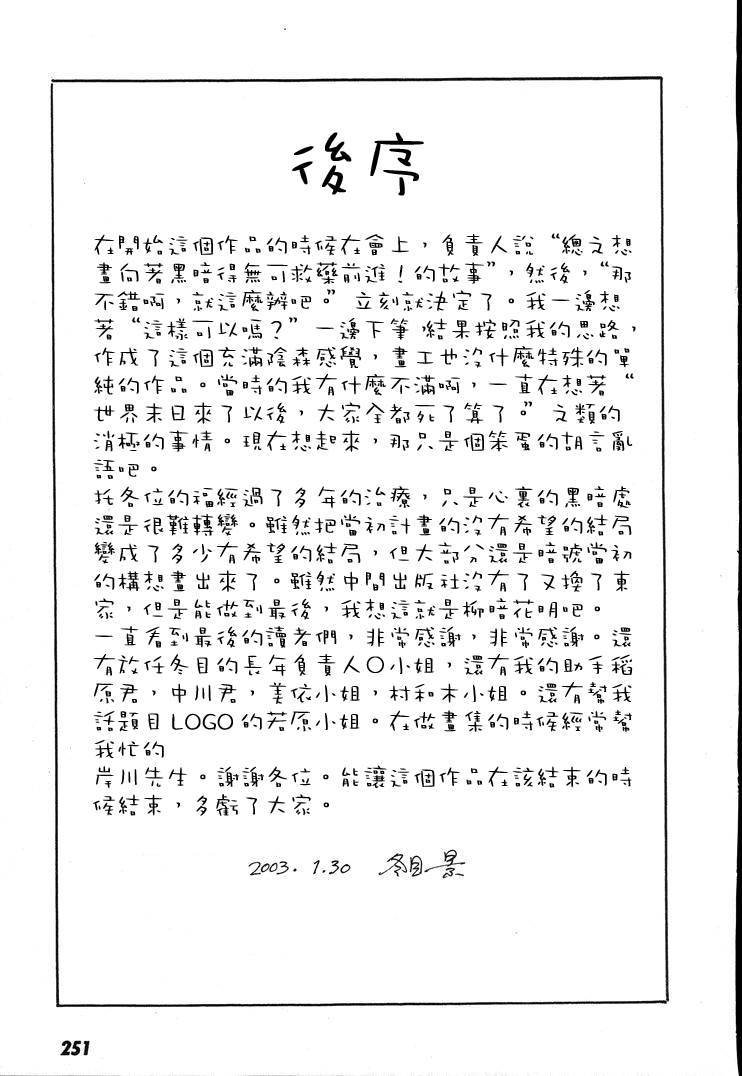 後序
在開始這個作品的時候在會上，負責人說“總之想
畫向著黑暗得無可救藥前進！的故事”，然後，“那
不錯啊，就這麼辦吧。” 立刻就決定了。我一邊想
著“這樣可以嗎？” 一邊下筆，結果按照我的思路，
作成了這個充滿陰森感覺，畫工也沒什麼特殊的單
純的作品。當時的我有什麼不滿啊，一直在想著“
世界末日來了以後，大家全都死了算了。” 之類的
消極的事情。現在想起來，那只是個笨蛋的胡言亂
語吧。
托各位的福經過了多年的治療，只是心裏的黑暗處
還是很難轉變。雖然把當初計畫的沒有希望的結局
變成了多少有希望的結局，但大部分還是暗號當初
的構想畫出來了。雖然中間出版社沒有了又換了東
家，但是能做到最後，我想這就是柳暗花明吧。
一直看到最後的讀者們，非常感謝，非常感謝。還
有放任冬目的長年負責人〇小姐，還有我的助手稻
原君，中川君，美依小姐，村和木小姐。還有幫我
話題目 LOGO 的若原小姐。在做畫集的時候經常幫
我忙的
岸川先生。謝謝各位。能讓這個作品在該結束的時
候結束，多虧了大家。
2003. 1.30 冬目景
251